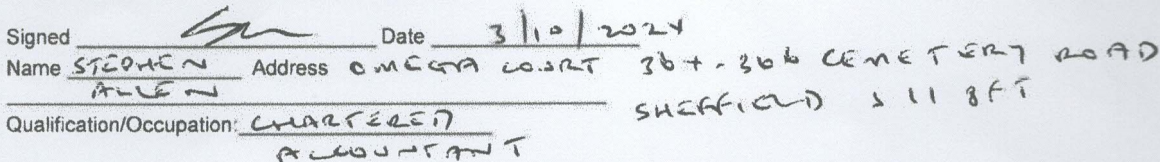 Signed Date 3/10/2024
Name STEPHEN Address OMEGA COURT 364-366 CEMETERY ROAD
ALLEN SHEFFIELD S11 8FT
Qualification/Occupation: CHARTERED
ACCOUNTANT